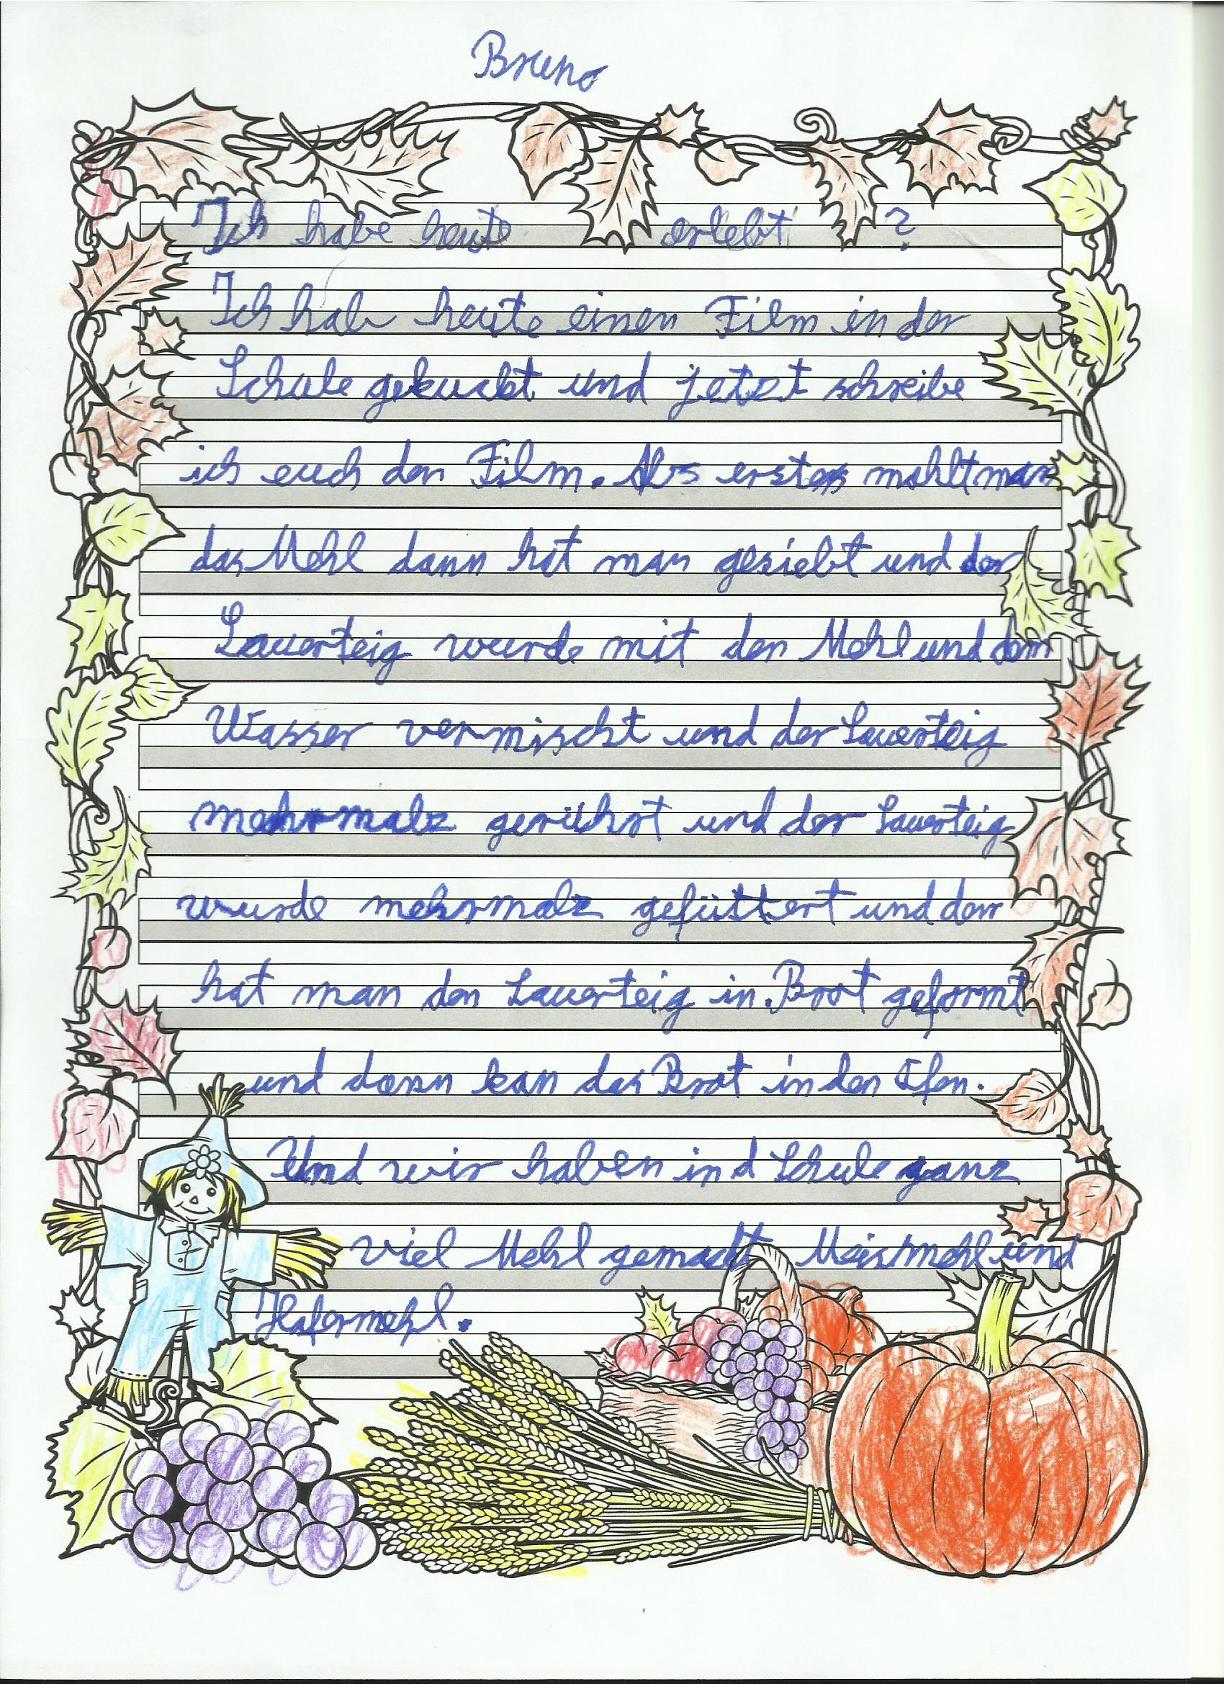 Bruno
Ich habe heute erlebt ?
Ich hab heute einen Film in der
Schule gekuckt und jetzt schreibe
ich euch den Film. Als erstes mahlt man
das Mehl dann hat man gesiebt und der
Sauerteig wurde mit den Mehl und dem
Wasser vermischt und der Sauerteig
mehrmalz gerührt und der Sauerteig
wurde mehrmalz gefüttert und dann
hat man den Sauerteig in Brot geformt
und dann kan das Brot in den Ofen.
Und wir haben in d Schule ganz
viel Mehl gemacht Meismehl und
Hafermehl.